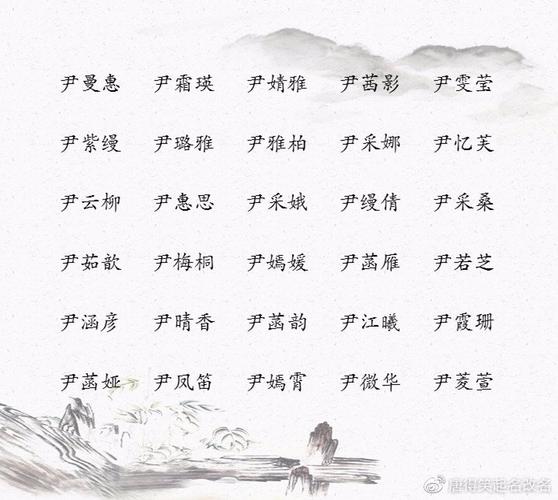 尹曼惠 尹霜瑛 尹婧雅 尹茜影 尹雯莹
尹紫缦 尹璐雅 尹雅柏 尹采娜 尹忆芙
尹云柳 尹惠思 尹采娥 尹缦倩 尹采桑
尹茹歆 尹梅桐 尹嫣媛 尹菡雁 尹若芝
尹涵彦 尹晴香 尹菡韵 尹江曦 尹霞珊
尹菡娅 尹凤笛 尹嫣霄 尹微华 尹菱萱
唐得笑起名改名